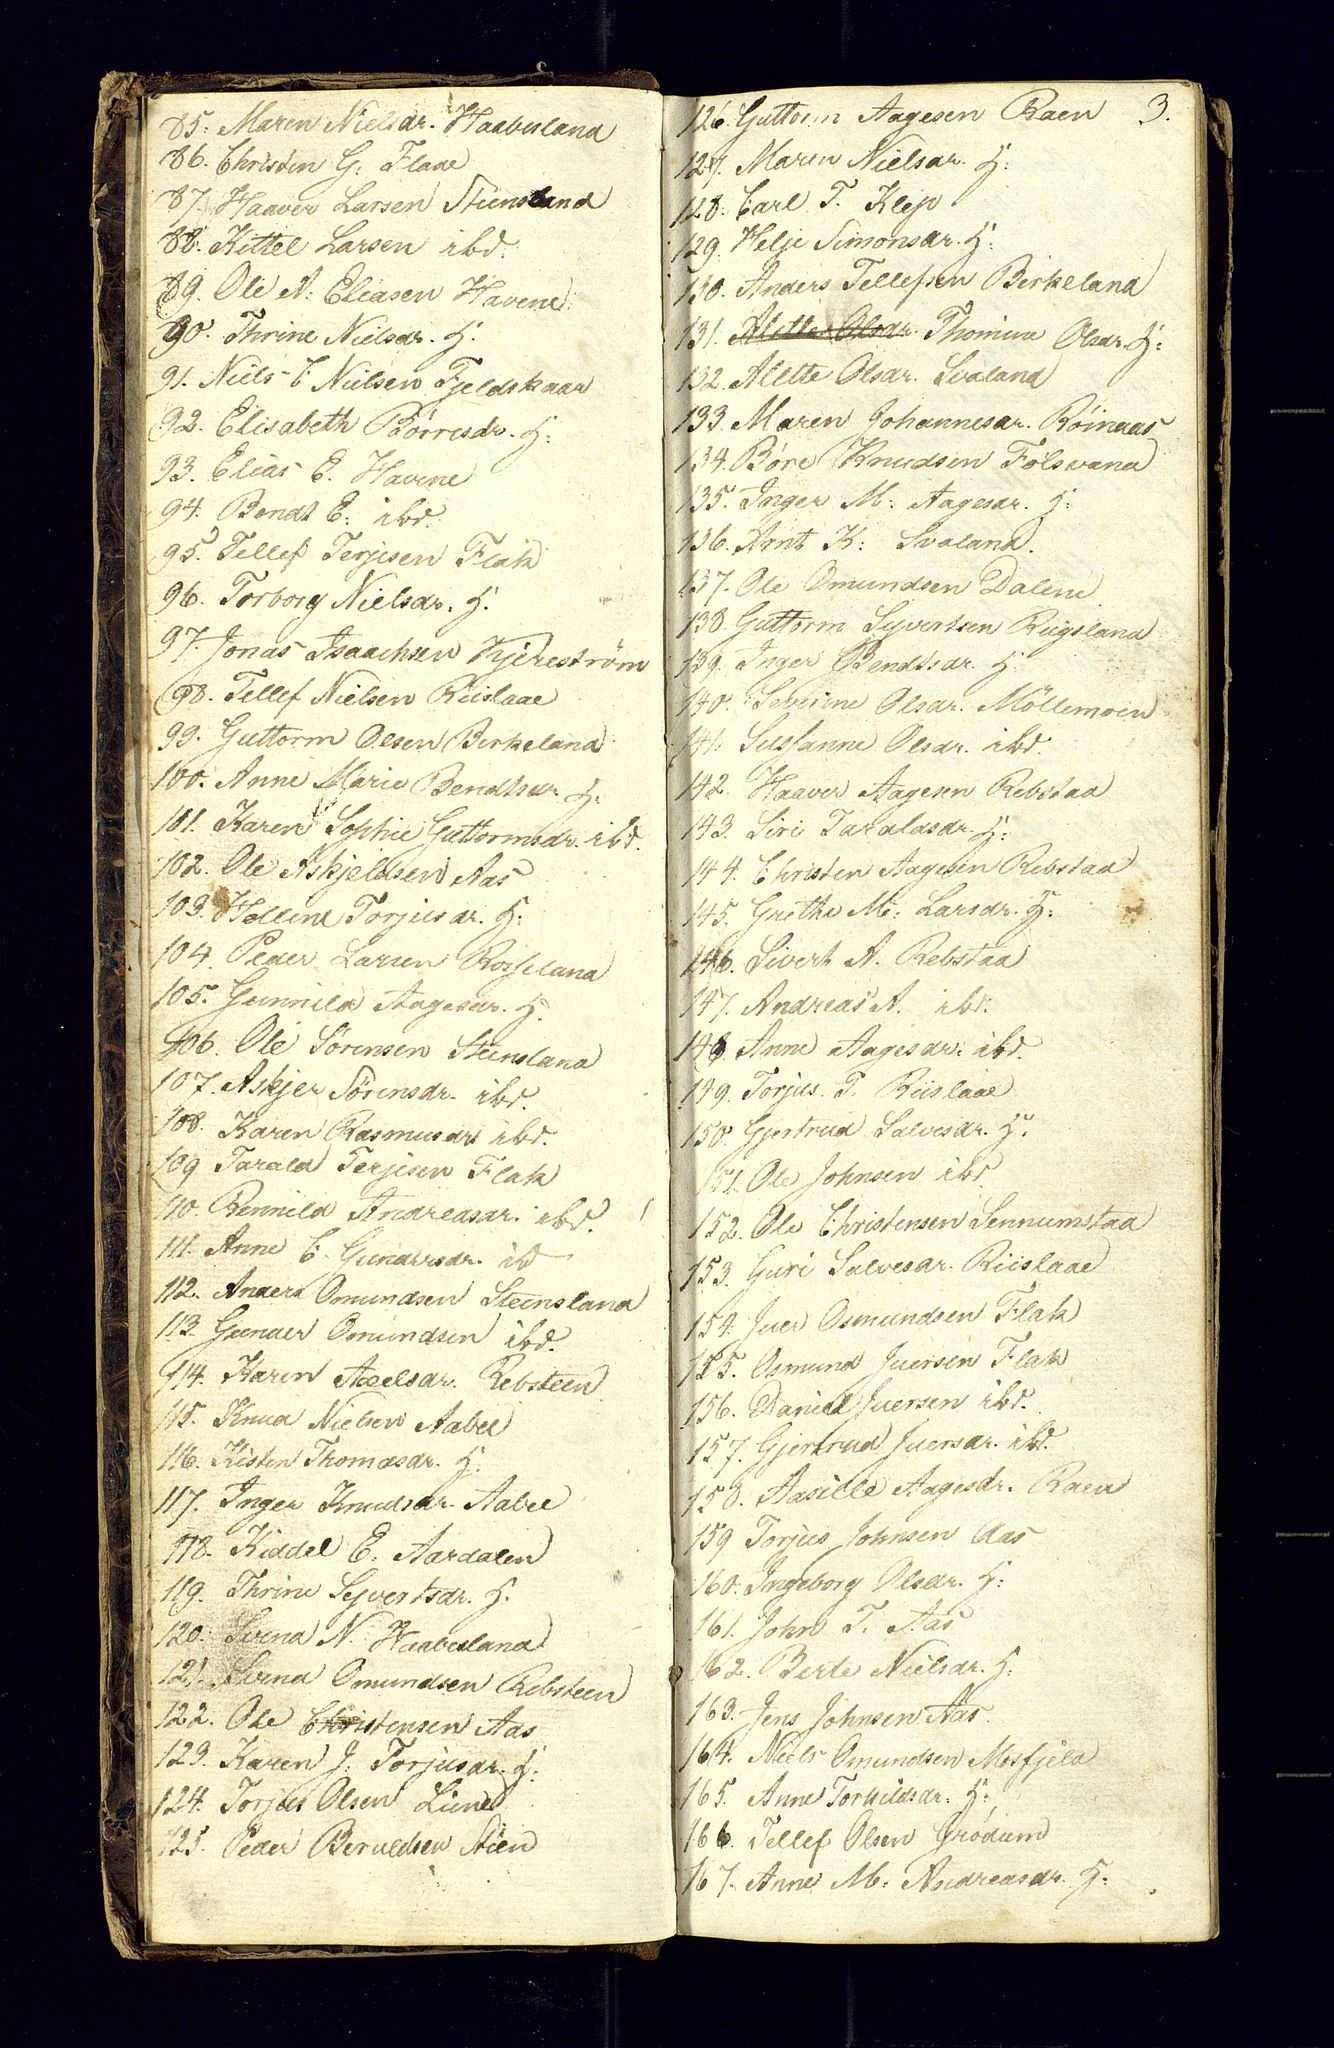 85. Maren Nielsdr. Haabesland
86. Christen G. Flaae
87. Haaver Larsen Steensland
88. Kittel Larsen ibd.
89. Ole N. Eliasen Havene
90. Thrine Nielsdr. H.
91. Niels C Nielsen Fjeldskaar
92. Elisabeth Börresdr. H:
93. Elias E. Havene
94. Bendt E: ibd.
95. Tellef Terjesen Flak
96. Torborg Nielsdr. H.
97. Jonas Isaachsen Kjereström
98. Tellef Nielsen Riislaae
99. Guttorm Olsen Birkeland
100. Anne Marie Bendtsdr. H.
101. Karen Sophie Guttormsdr. ibd.
102. Ole Askjeldsen Aas
103. Helline Torjusdr. H.
104. Peder Larsen Rosseland
105. Gunnild Aagesdr. H.
106. Ole Sörensen Steensland
107. Askjer Sörensdr. ibd.
108. Karen Rasmusdr ibd.
109 Tarald Terjesen Flak
110. Rennild Andreasdr. ibd.
111. Anne C. Gundersdr. ib
112. Anders Omundsen Steensland
113. Gunder Omundsen ibd.
114. Karen Axelsdr. Rebsteen
115. Knud Nielsen Aabel
116. Kisten Thomasdr. H.
117. Inger Knudsdr. Aabel
118. Kiddel E. Aardalen
119. Thrine Syvertsdr. H.
120. Svend N. Haabesland
121. Svend Omundsen Rebsteen
122. Ole Christensen Aas
123. Karen J. Torjusdr. H.
124. Torjus Olsen Liene
125. Peder Beruldsen Steen
126. Guttorm Aagesen Raen 3.
127. Maren Nielsdr. H:
128. Carl T. Klep
129. Helje Simonsdr. H:
130. Anders Tellefsen Birkeland
131. Alette Olsdr. Thomine Olsdr. H:
132. Alette Olsdr. Svaland
133. Maren Johannesdr. Röinaas
134. Böre Knudsen Fölsvand
135. Inger M: Aagesdr. H:
136. Arnt K: Svaland.
137. Ole Omundsen Dalene
138. Guttorm Syvertsen Rugsland
139. Inger Bendtsdr. H.
140. Severine Olsdr. Möllemoen
141. Sussanne Olsdr. ibd.
142. Haaver Aagesen Rebstaa
143. Siri Taraldsdr. H:
144. Christen Aagesen Rebstaa
145. Grethe M: Larsdr. H:
146. Sivert A. Rebstaa
147. Andreas A. ibd.
148. Anne Aagesdr. ibd.
149. Torjus T. Riislaae
150. Gjertrud Salvesdr. H.
151. Ole Johnsen ibd.
152. Ole Christensen Sennumstaa
153. Guri Salvesdr. Riislaae
154. Iver Osmundsen Flak
155. Osmund Iversen Flak
156. Daniel Iversen ibd.
157. Gjertrud Iversdr. ibd.
158. Aasille Aagesdr. Raen
159 Torjus Johnsen Aas
160. Ingeborg Olsdr. H:
161. John T. Aas
162. Berte Nielsdr. H:
163. Jens Johnsen Aas.
164. Niels Omundsen Mosfjeld
165. Anne Torkildsdr. H:
166. Tellef Olsen Grödum
167. Anne M: Andreasdr. H: